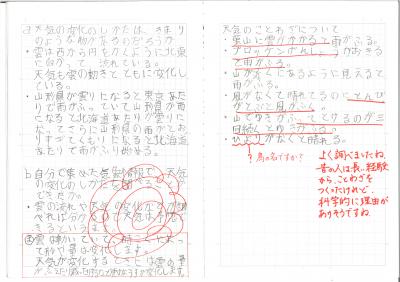 a 天気の変化のしかたは、きまり
のようなものがあるのだろうか
・雲は西から円をかくように北東
に向かって 流れている。
天気も雲の動きとともに変化し
ている。
・山形県が曇りになると東京あた
りで雨がふっていて山形県が雨
になると北海道あたりが曇りに
なって
すくてくもりになると北海道
あたりで雨がふり
b 自分で集めた気象情報で、天気
の変化のしかたを
できたか。
雲の流れや天気の変化
べれば分
できると
③雲は動いていて
って形や量は変化します。
天気が変化するときには雲の量
天気のことわざについて
・葉山に雲がかかると雨がふる。
・ブロッケンげんしょうがおきる
と雨がふる。
・山が近くにあるように見えると
雨がふる。
・風がなくて晴れてるのにとんび
がとぶと風がふく。
・山でゆきがふってとけるのが三
回続くとゆきがふる。
・ひょうがなくと晴れる。
?鳥の名ですか?
よく調べましたね。
昔の人は長い経験
から、ことわざを
つくったけれど、
科学的に理由が
ありそうですね。